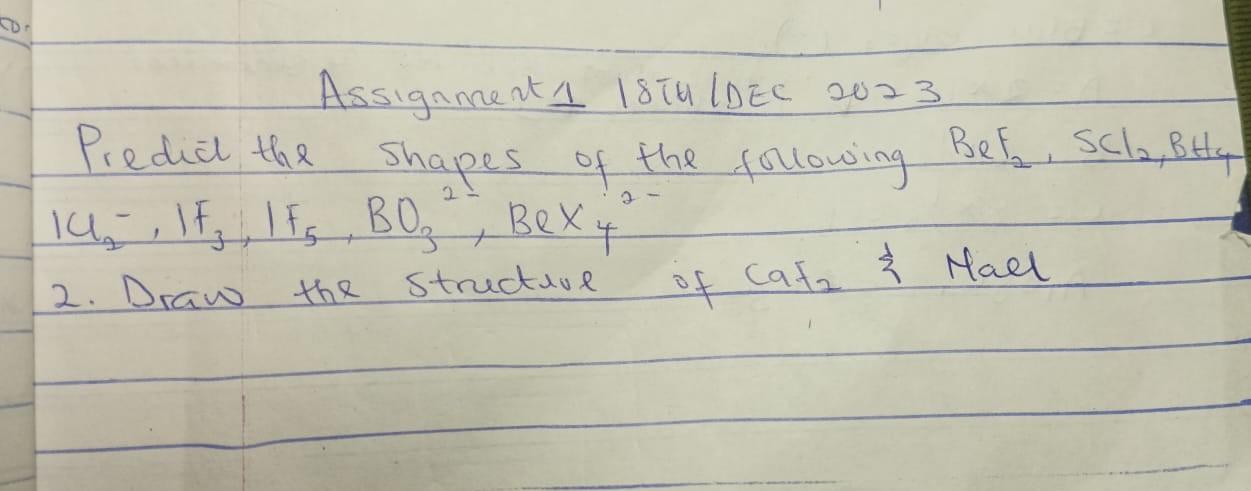 Assignment 1 18TH/DEC 2023
Predict the shapes of the following BeF₂, SCl₂, BH₄
ICl₂⁻, IF₃, IF₅, BO₃²⁻, BeX₄²⁻
2. Draw the structure of CaF₂ & NaCl